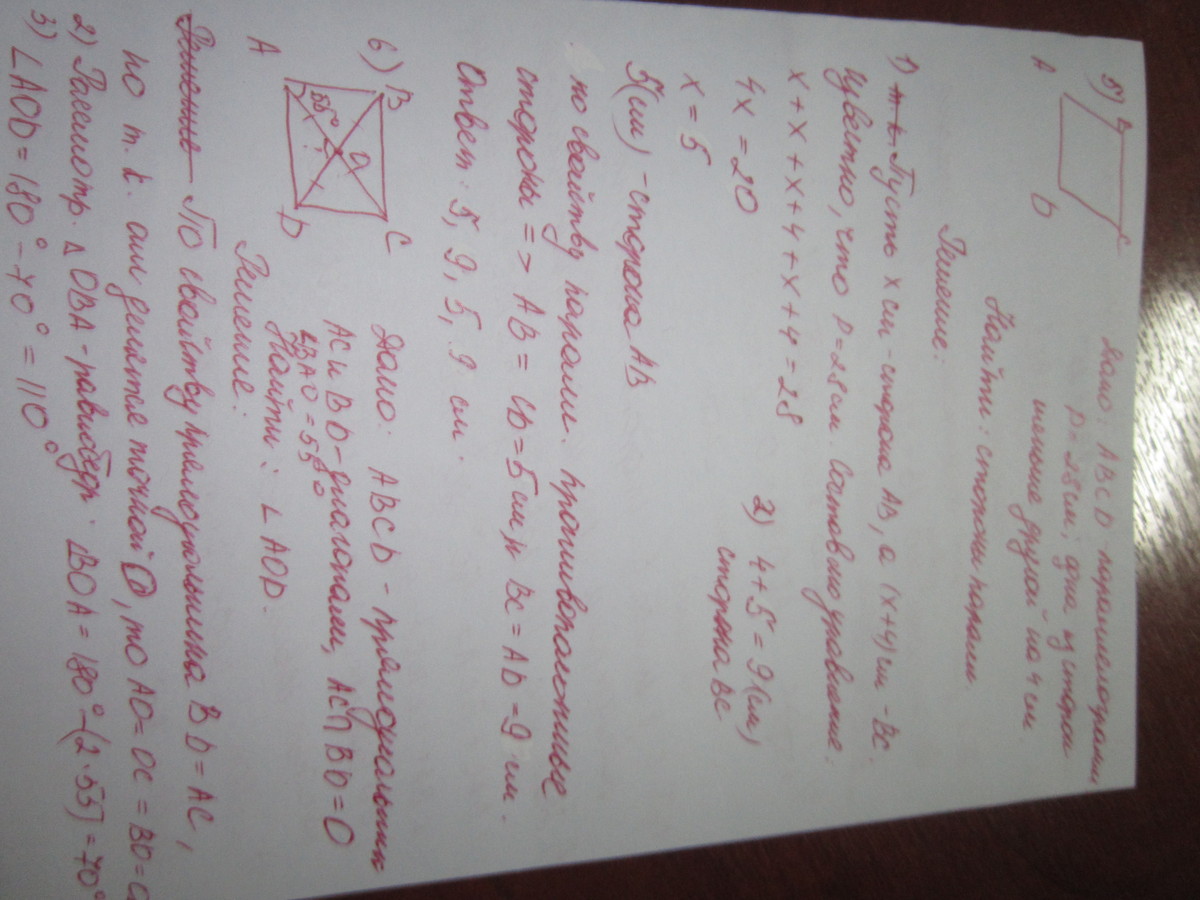 5) B C
A D
Дано: ABCD - параллелограмм
P=28см; одна из сторон
меньше другой на 4 см.
Найти: стороны паралл.
Решение:
1) Пусть x см - сторона AB, а (x+4) см - BC.
Известно, что P=28 см. Составлю уравнение:
x + x + x + 4 + x + 4 = 28
4x = 20
x = 5
5(см) - сторона AB
2) 4+5 = 9 (см)
сторона BC
по свойству паралл. противоположные
стороны = => AB = CD = 5 см, и BC = AD = 9 см.
Ответ: 5, 9, 5, 9 см.
6) B C
55° O ?
A D
Дано: ABCD - прямоугольник
AC и BD - диагонали, AC∩BD=O
∠BAO = 55°
Найти: ∠AOD.
Решение:
По свойству прямоугольника BD = AC,
но т.к. они делятся точкой O, то AO=OC=BO=
2) Рассмотр. △OBA - равнобедр. ∠BOA = 180° - (2·55) = 70°
3) ∠AOD = 180° - 70° = 110°